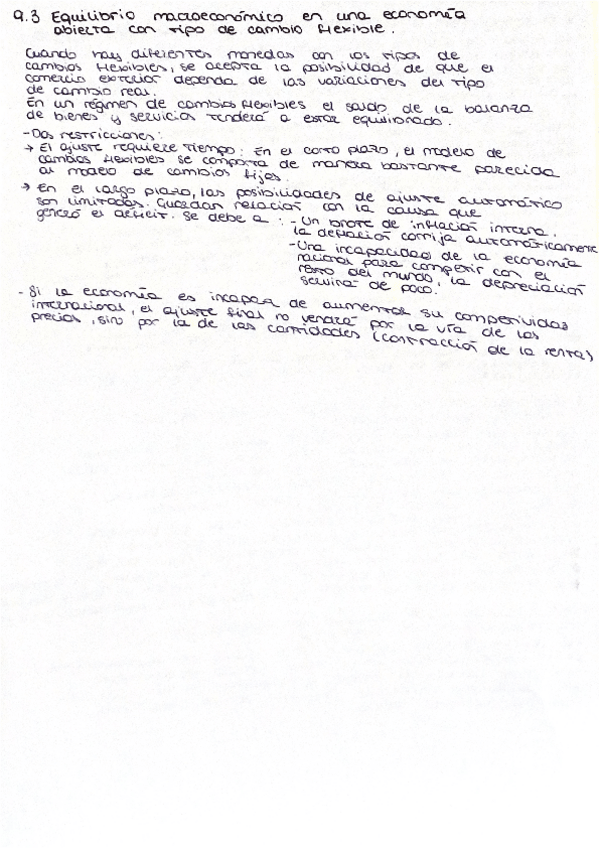 9.3 Equilibrio macroeconómico en una economía
abierta con tipo de cambio flexible.
Cuando hay diferentes monedas con los tipos de
cambios flexibles, se acepta la posibilidad de que el
comercio exterior dependa de las variaciones del tipo
de cambio real.
En un régimen de cambios flexibles el saldo de la balanza
de bienes y servicios tenderá a estar equilibrado.
- Dos restricciones:
→ El ajuste requiere tiempo: En el corto plazo, el modelo de
cambios flexibles se comporta de manera bastante parecida
al modelo de cambios fijos.
→ En el largo plazo, las posibilidades de ajuste automático
son limitadas. Guardan relación con la causa que
generó el déficit. Se debe a : - Un brote de inflación interna.
la deflación corrija automáticamente
- Una incapacidad de la economía
nacional para competir con el
resto del mundo, la depreciación
serviría de poco.
- Si la economía es incapaz de aumentar su competividad
internacional, el ajuste final no vendrá por la vía de los
precios, sino por la de las cantidades (contracción de la renta)